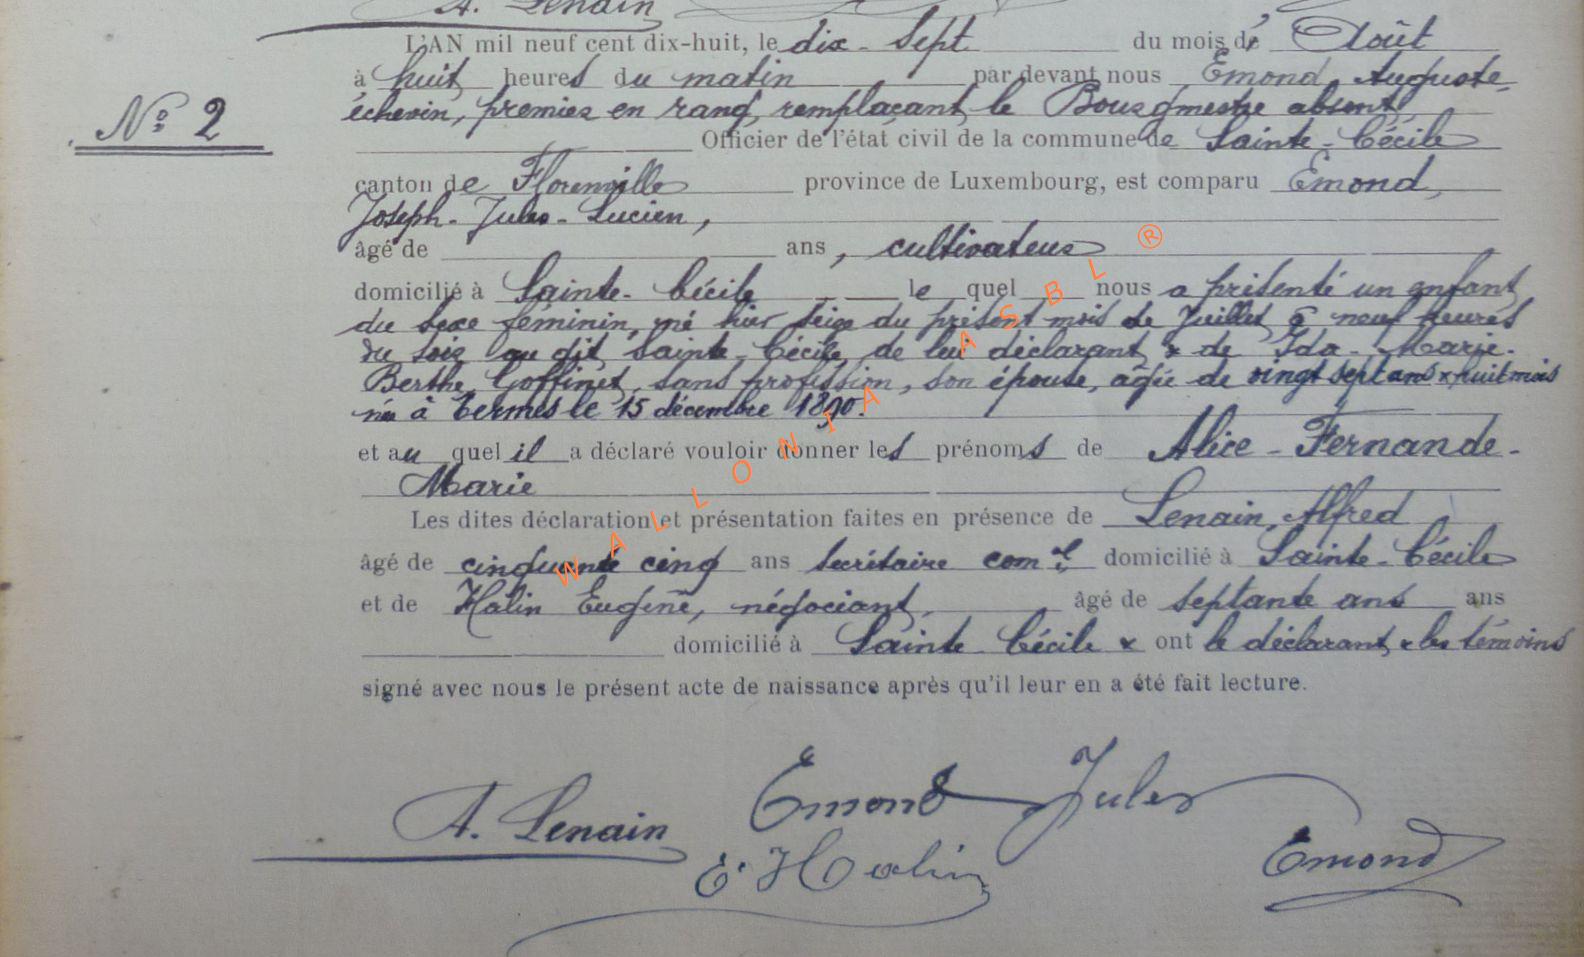 A. Lenain
L'AN mil neuf cent dix-huit, le dix-sept du mois de Août
à huit heures du matin par devant nous Emond, Auguste,
échevin, premier en rang, remplaçant le Bourgmestre absent,
Nº 2
Officier de l'état civil de la commune de Sainte-Cécile
canton de Florenville province de Luxembourg, est comparu Emond,
Joseph-Jules-Lucien,
âgé de ans, cultivateur
domicilié à Sainte-Cécile le quel nous a présenté un enfant
du sexe féminin, né hier seize du présent mois de Juillet à neuf heures
du soir au dit Sainte-Cécile, de lui déclarant & de Ida-Marie-
Berthe Goffinet, sans profession, son épouse, âgée de vingt sept ans & huit mois
née à Termes le 15 décembre 1890.
et au quel il a déclaré vouloir donner les prénoms de Alice-Fernande-
Marie
Les dites déclaration et présentation faites en présence de Lenain, Alfred
âgé de cinquante cinq ans secrétaire com.l domicilié à Sainte-Cécile
et de Halin Eugène, négociant, âgé de septante ans ans
domicilié à Sainte-Cécile & ont le déclarant & les témoins
signé avec nous le présent acte de naissance après qu'il leur en a été fait lecture.
Emond Jules
A. Lenain
E. Halin
Emond
WALLONIA ASBL ®